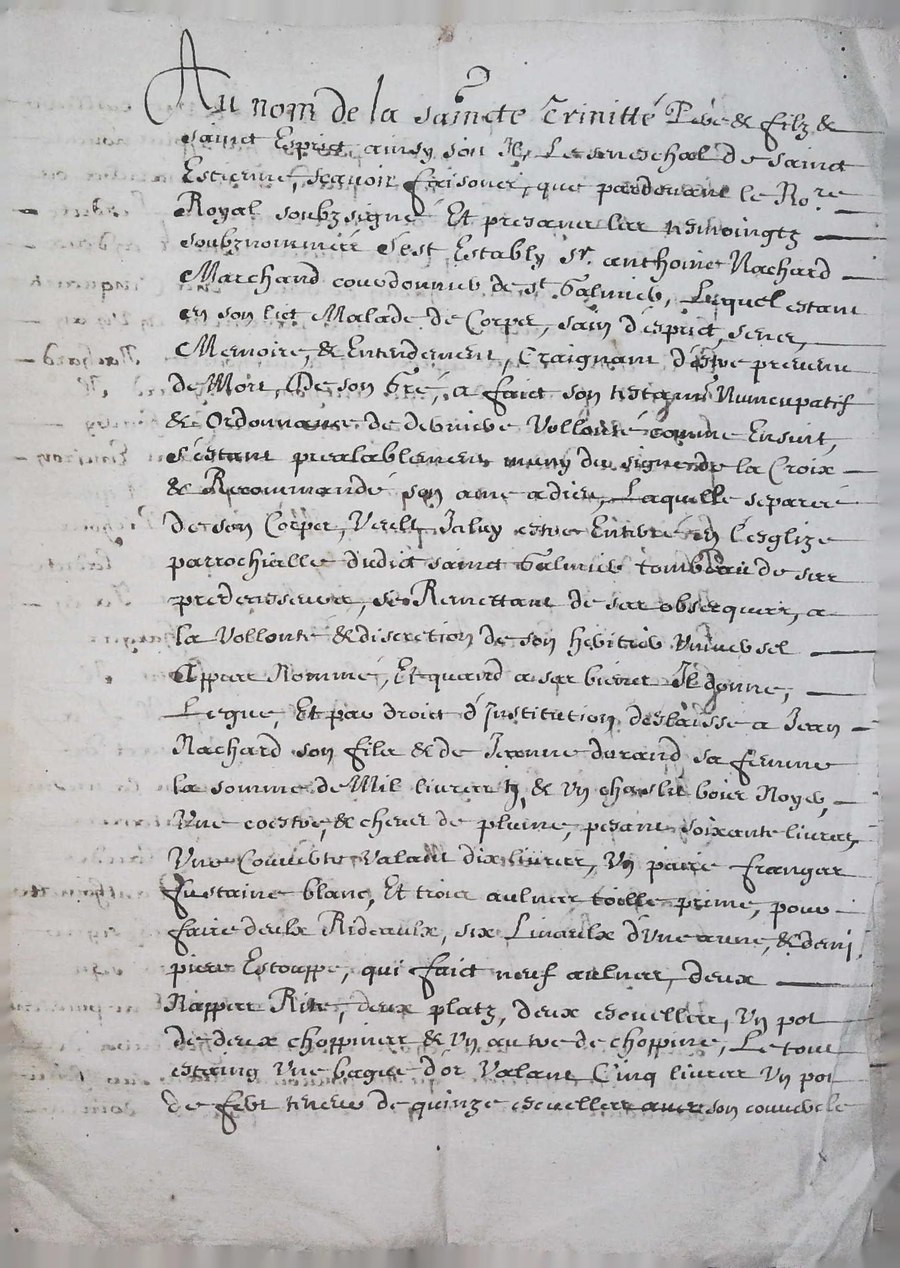 Au nom de la saincte Trinitté Pere & filz &
sainct Esprit, ainsy soit Il, Le seneschal de sainct
Estienne, sçauoir faisons, que pardeuant le No.re
Royal soubzsigné Et presans les tesmoingtz
soubznommées s'est Estably sr. anthoine Nachard
Marchand courdonnier de st Galmier, Lequel estant
en son lict Malade de Corps, sain d'esprit, sens,
Memoire, & Entendement, Craignant d'estre preuenu
de Mort, De son Gré, a faict son testamt Nuncupatif
& Ordonnance de derniere Vollonté comme Ensuit,
s'estant prealablement muny du signe de la Croix
& Recommandé son ame a dieu, Laquelle separée
de son Corps, Veult Iceluy estre Enterré en l'esglize
parrochialle dudict sainct Galmier tombeau de ses
predecesseurs, se Remettant de ses obseques, a
la Vollonté & discretion de son heritier Vniuersel
Appres Nommé, Et quand a ses biens Il donne,
Legue, Et par droit d'Institution deslaisse a Jean
Nachard son filz & de Jeanne durand sa femme
la somme de Mil liures tz, & Vn chaslit bois Noyer,
Vne coestre, & cheues de plume, pesant soixante liures,
Vne Couuerte Valant dix liures, Vn paire franges
fustaine blanc, Et trois aulnes toille prime, pour
faire deulx Rideaulx, six Linceulx d'vne aune, & demi
piece Estouppe, qui faict neuf aulnes, deux
Nappes Rite, deux platz, deux escuelles, Vn pot
de deux choppines & Vn autre de choppine, Le tout
estaing Vne bague d'or Valant Cinq liures Vn pot
de fert teneur de quinze escuelles auec son couuercle